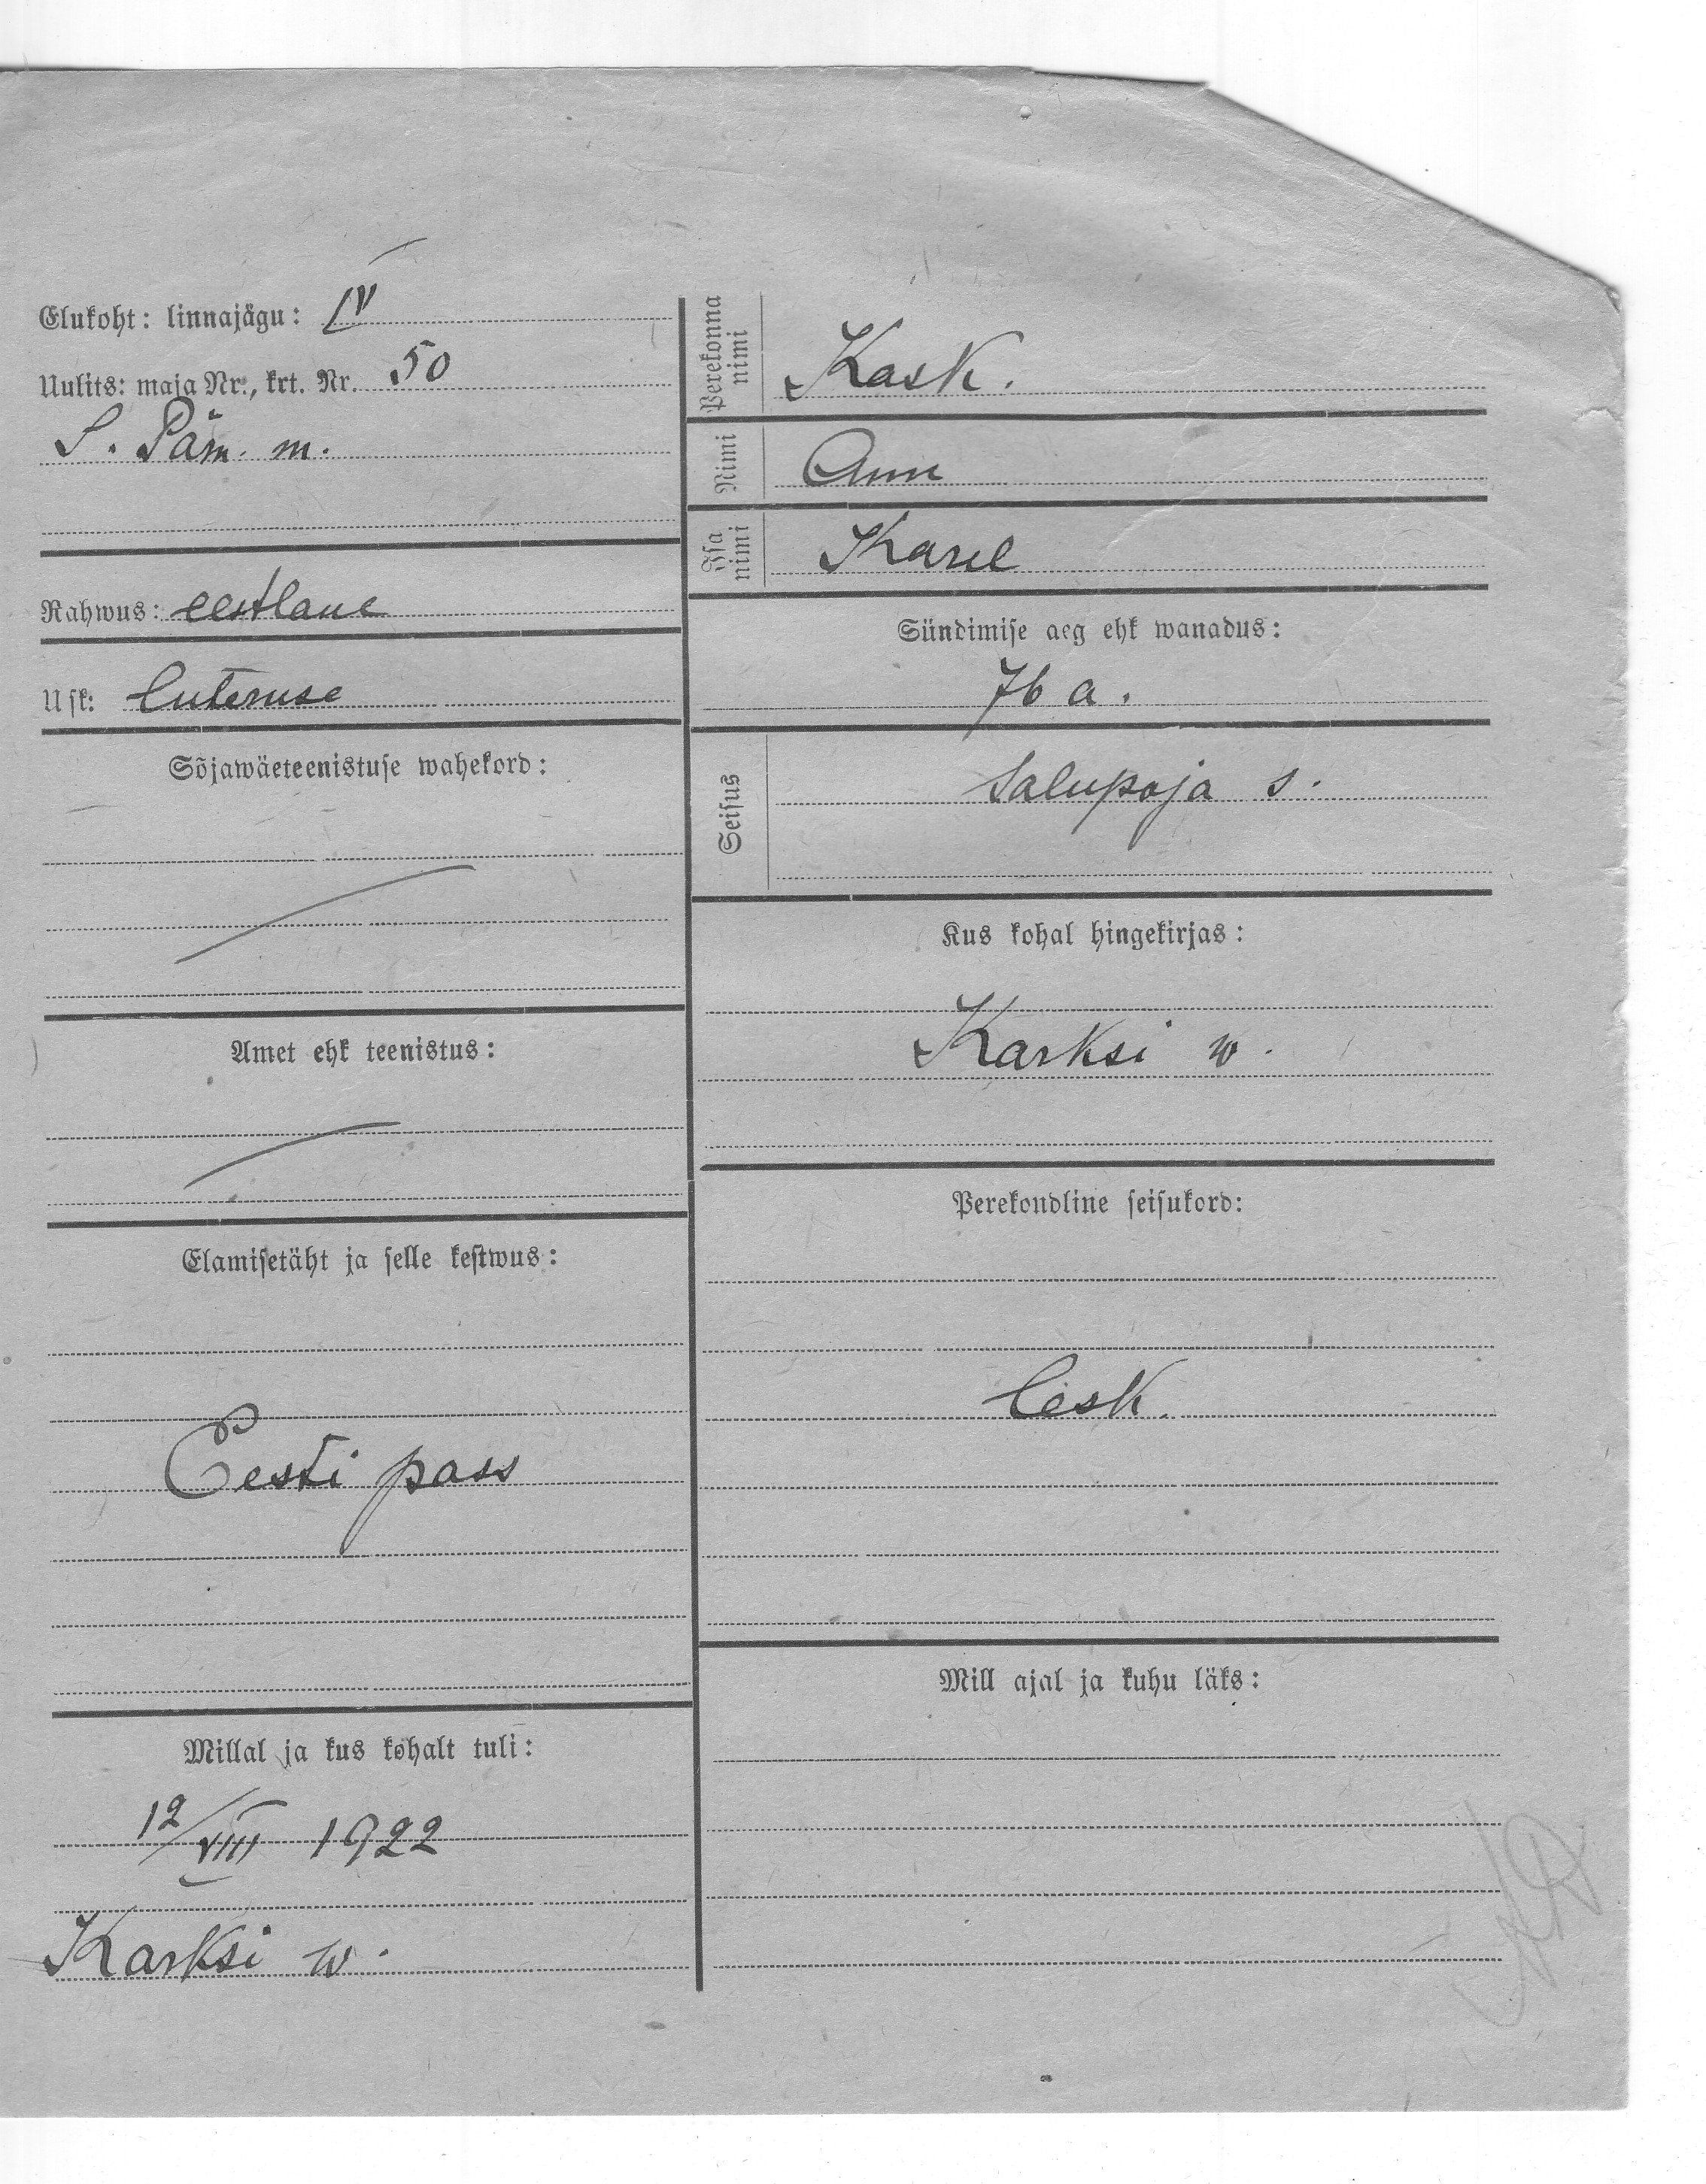 Elukoht: linnajägu: IV
Uulits: maja Nr., krt. Nr. 50
S. Pärn. m.
Rahwus: eestlane
Usk: luteruse
Sõjawäeteenistuse wahekord:
Amet ehk teenistus:
Elamisetäht ja selle kestwus:
Eesti pass
Millal ja kus kohalt tuli:
12/VIII 1922
Karksi w.
Perekonna nimi
Kask.
Nimi
Ann
Isa nimi
Karel
Sündimise aeg ehk wanadus:
76 a.
Seisus
talupoja s.
Kus kohal hingekirjas:
Karksi w.
Perekondline seisukord:
lesk.
Mill ajal ja kuhu läks: